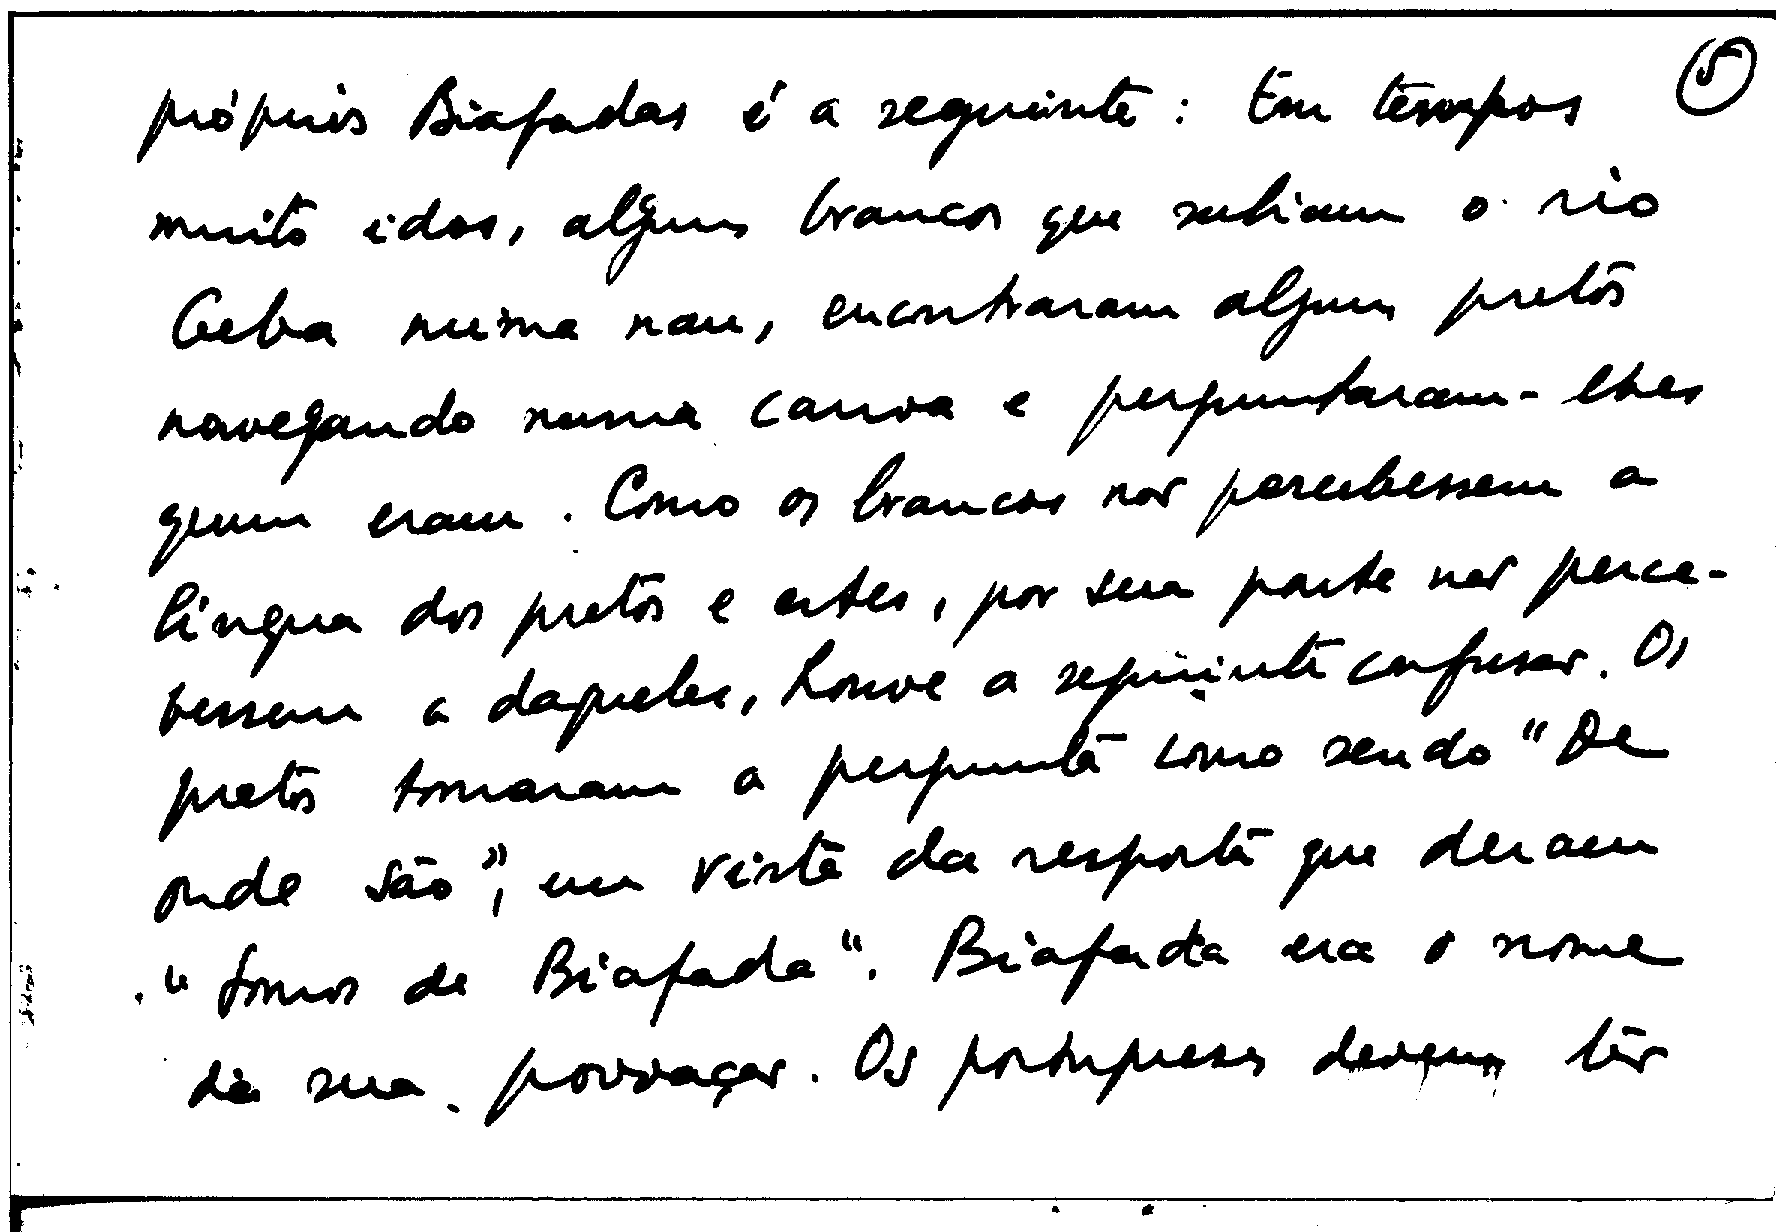 5
próprios Biafadas é a seguinte: Em tempos
muito idos, alguns brancos que subiam o rio
Geba numa nau, encontraram alguns pretos
navegando numa canoa e perguntaram-lhes
quem eram. Como os brancos não percebessem a
língua dos pretos e estes, por sua parte não perce-
bessem a daqueles, houve a seguinte confusão. Os
pretos tomaram a pergunta como sendo "De
onde são", em vista da resposta que deram
"Somos de Biafada". Biafada era o nome
da sua povoação. Os portugueses devem ter